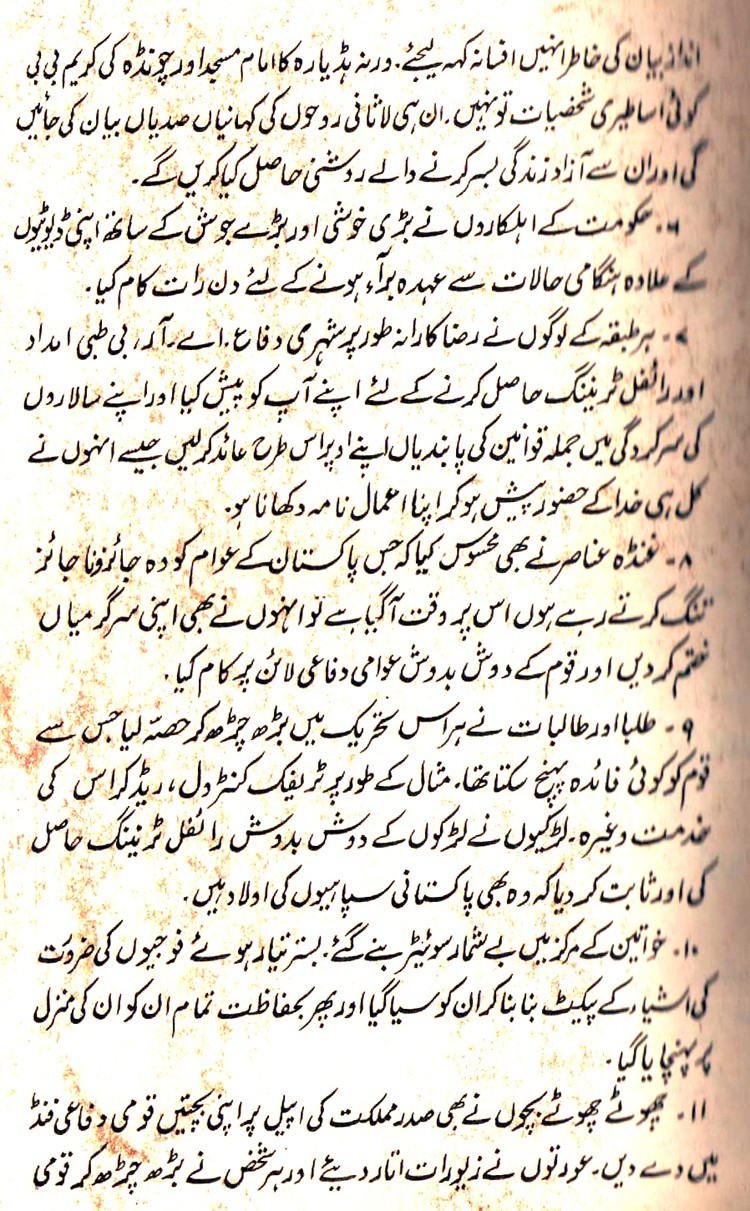 انداز بیان کی خاطر انہیں افسانہ کہہ لیجئے. ورنہ ہڈیارہ کا امام مسجد اور چونڈہ کی کریم بی بی
کوئی اساطیری شخصیات تو نہیں. ان ہی لاثانی روحوں کی کہانیاں صدیاں بیان کی جائیں
گی اور ان سے آزاد زندگی بسر کرنے والے روشنی حاصل کیا کریں گے.
۶- حکومت کے اہلکاروں نے بڑی خوشی اور بڑے جوش کے ساتھ اپنی ڈیوٹیوں
کے علاوہ ہنگامی حالات سے عہدہ برآء ہونے کے لئے دن رات کام کیا.
۷- ہر طبقہ کے لوگوں نے رضا کارانہ طور پر شہری دفاع. اے. آر. پی طبی امداد
اور رائفل ٹریننگ حاصل کرنے کے لئے اپنے آپ کو پیش کیا اور اپنے سالاروں
کی سرکردگی میں جملہ قوانین کی پابندیاں اپنے اوپر اس طرح عائد کر لیں جیسے انہوں نے
کل ہی خدا کے حضور پیش ہو کر اپنا اعمال نامہ دکھانا ہو.
۸- غنڈہ عناصر نے بھی محسوس کیا کہ جس پاکستان کے عوام کو وہ جائز و ناجائز
تنگ کرتے رہے ہوں اس پر وقت آگیا ہے تو انہوں نے بھی اپنی سرگرمیاں
ختم کر دیں اور قوم کے دوش بدوش عوامی دفاعی لائن پر کام کیا.
۹- طلبا اور طالبات نے ہر اس تحریک میں بڑھ چڑھ کر حصہ لیا جس سے
قوم کو کوئی فائدہ پہنچ سکتا تھا. مثال کے طور پر ٹریفک کنٹرول، ریڈ کراس کی
خدمت وغیرہ. لڑکیوں نے لڑکوں کے دوش بدوش رائفل ٹریننگ حاصل
کی اور ثابت کر دیا کہ وہ بھی پاکستانی سپاہیوں کی اولاد ہیں.
۱۰- خواتین کے مرکز میں بے شمار سوئیٹر بنے گئے. بستر تیار ہوئے فوجیوں کی ضرورت
کی اشیاء کے پیکیٹ بنا بنا کر ان کو سیا گیا اور پھر بحفاظت تمام ان کو ان کی منزل
پر پہنچایا گیا.
۱۱- چھوٹے چھوٹے بچوں نے بھی صدر مملکت کی اپیل پر اپنی بچتیں قومی دفاعی فنڈ
میں دے دیں. عورتوں نے زیورات اتار دیئے اور ہر شخص نے بڑھ چڑھ کر قومی